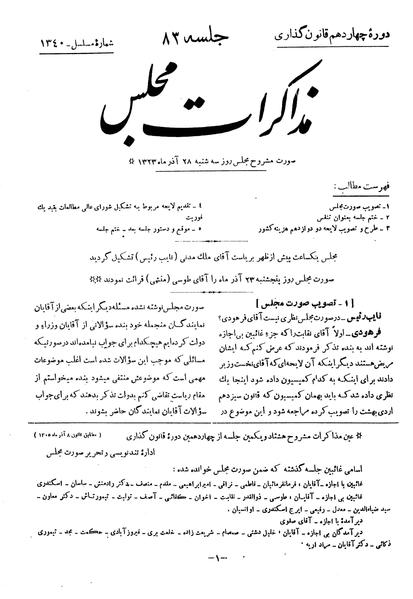 دورهٔ چهاردهم قانون گذاری
جلسه ۸۳
شمارهٔ مسلسل - ۱۳۴۰
مذاکرات مجلس
صورت مشروح مجلس روز سه شنبه ۲۸ آذر ماه ۱۳۲۳
فهرست مطالب :
۱- تصویب صورت مجلس
۲ - ختم جلسه بعنوان تنفس
۳ - طرح و تصویب لایحه دو دوازدهم هزینه کشور
۴ - تقدیم لایحه مربوط به تشکیل شورای عالی مطالعات بقید یک
فوریت
۵ - موقع و دستور جلسه بعد - ختم جلسه
مجلس یکساعت پیش از ظهر بریاست آقای ملک مدنی (نایب رئیس) تشکیل گردید
صورت مجلس روز پنجشنبه ۲۳ آذر ماه را آقای طوسی (منشی) قرائت نمودند
[ ۱ - تصویب صورت مجلس ]
نایب رئیس - در صورت مجلس نظری نیست آقای فرهودی؟
فرهودی - اولا آقای نقابت را که جزء غائبین بی اجازه
نوشته اند به بنده تذکر فرمودند که عرض کنم که ایشان
مریض هستند دیگر اینکه آن لایحه‌ای که آقای نخست وزیر
دادند برای اینکه به کدام کمیسیون داده شود اینجا یک
نظری داده شد که باید بهمان کمیسیون که قانون سیزدهم
اردی بهشت را تصویب کرده مراجعه شود و این موضوع در
صورت مجلس نوشته نشده مسئله دیگر اینکه بعضی از آقایان
نمایندگان منجمله خود بنده سؤالاتی از آقایان وزراء و
دولت کرده‌ایم هیچکدام برای جواب نیامده‌اند در صورتیکه
مسائلی که موجب این سؤالات شده است اغلب موضوعات
مهمی است که موضوعش منتفی میشود بنده میخواستم از
مقام ریاست تقاضی کنم بدولت تذکر بدهند که برای جواب
سؤالات آقایان نمایندگان حاضر بشوند .
عین مذاکرات مشروح هشتاد و یکمین جلسه از چهاردهمین دورهٔ قانون گذاری
(مطابق قانون ۸ آذر ماه ۱۳۰۵)
ادارهٔ تندنویسی و تحریر صورت مجلس
اسامی غائبین جلسه گذشته که ضمن صورت مجلس خوانده شده :
غائبین با اجازه - آقایان : فرمانفرمائیان - فاطمی - نراقی - امیر ابراهیمی - مقدم - منصف - دکتر رادمنش - ساسان - اسکندری
غائبین بی اجازه - آقایان : طوسی - ذوالقدر - نقابت - اخوان - کفائی - آصف - تولیت - تیمورتاش - دکتر معاون -
سید ضیاءالدین - معدل - رفیعی - ایرج اسکندری - آوانسیان .
دیر آمدهٔ با اجازه - آقای صفوی
دیر آمدگان بی اجازه - آقایان : خلیل دشتی - صمصام - شریعت زاده - خلعت بری - فیروزآبادی - حکمت - مجد - تیموری
ذکائی - دکتر آقایان - مراد اریه .
-۱-